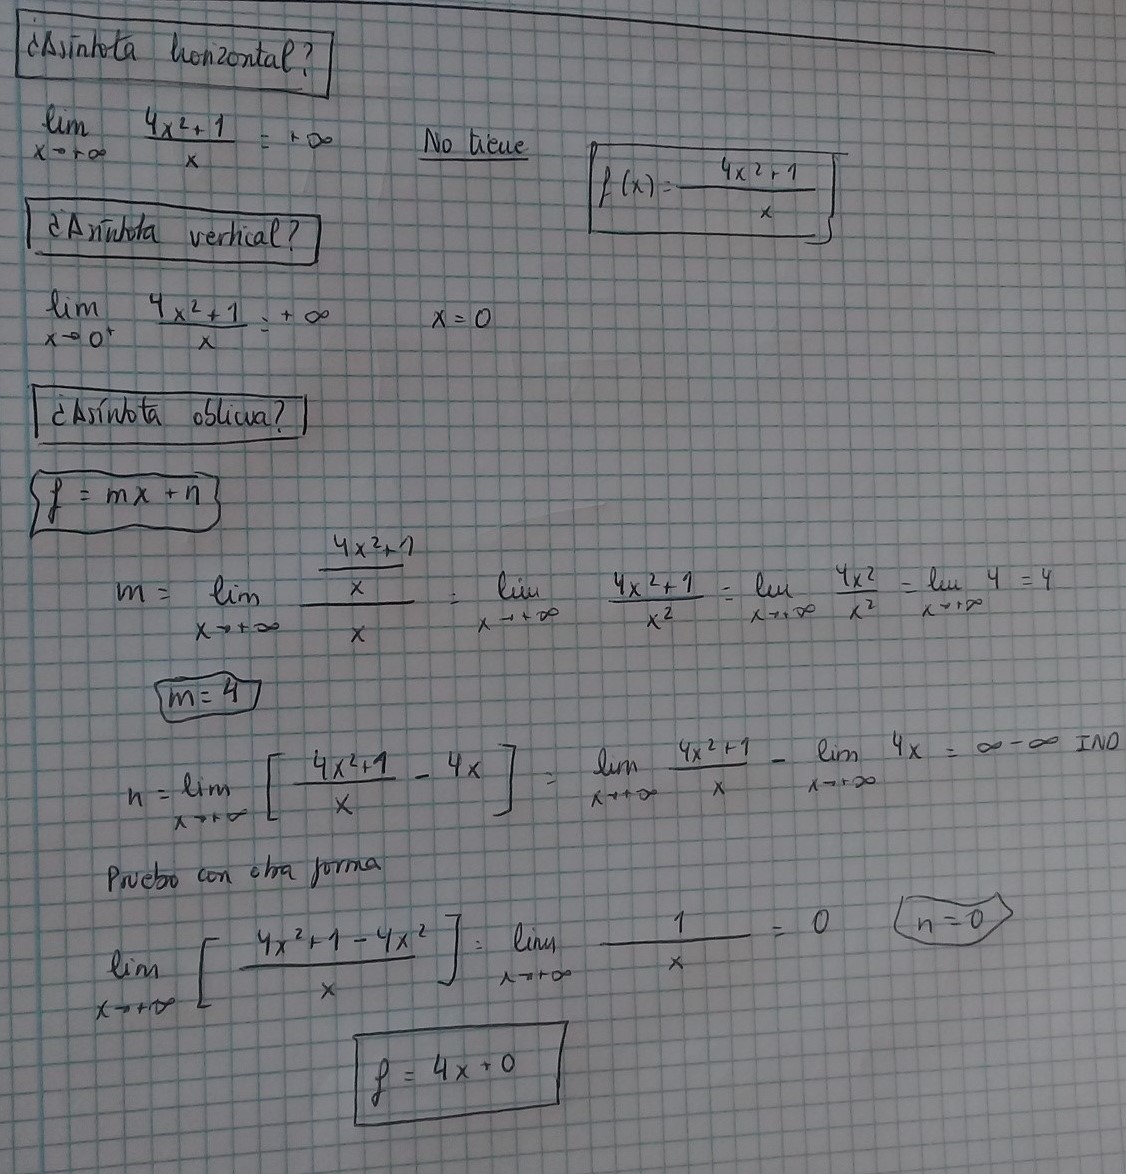 ¿Asíntota horizontal?
lim x→+∞ (4x²+1)/x = +∞ No tiene
f(x) = (4x²+1)/x
¿Asíntota vertical?
lim x→0⁺ (4x²+1)/x = +∞ x = 0
¿Asíntota oblicua?
y = mx + n
m = lim x→+∞ ((4x²+1)/x)/x = lim x→+∞ (4x²+1)/x² = lim x→+∞ 4x²/x² = lim x→+∞ 4 = 4
m = 4
n = lim x→+∞ [(4x²+1)/x - 4x] = lim x→+∞ (4x²+1)/x - lim x→+∞ 4x = ∞-∞ IND
Pruebo con otra forma
lim x→+∞ [(4x²+1-4x²)/x] = lim x→+∞ 1/x = 0 n = 0
y = 4x+0